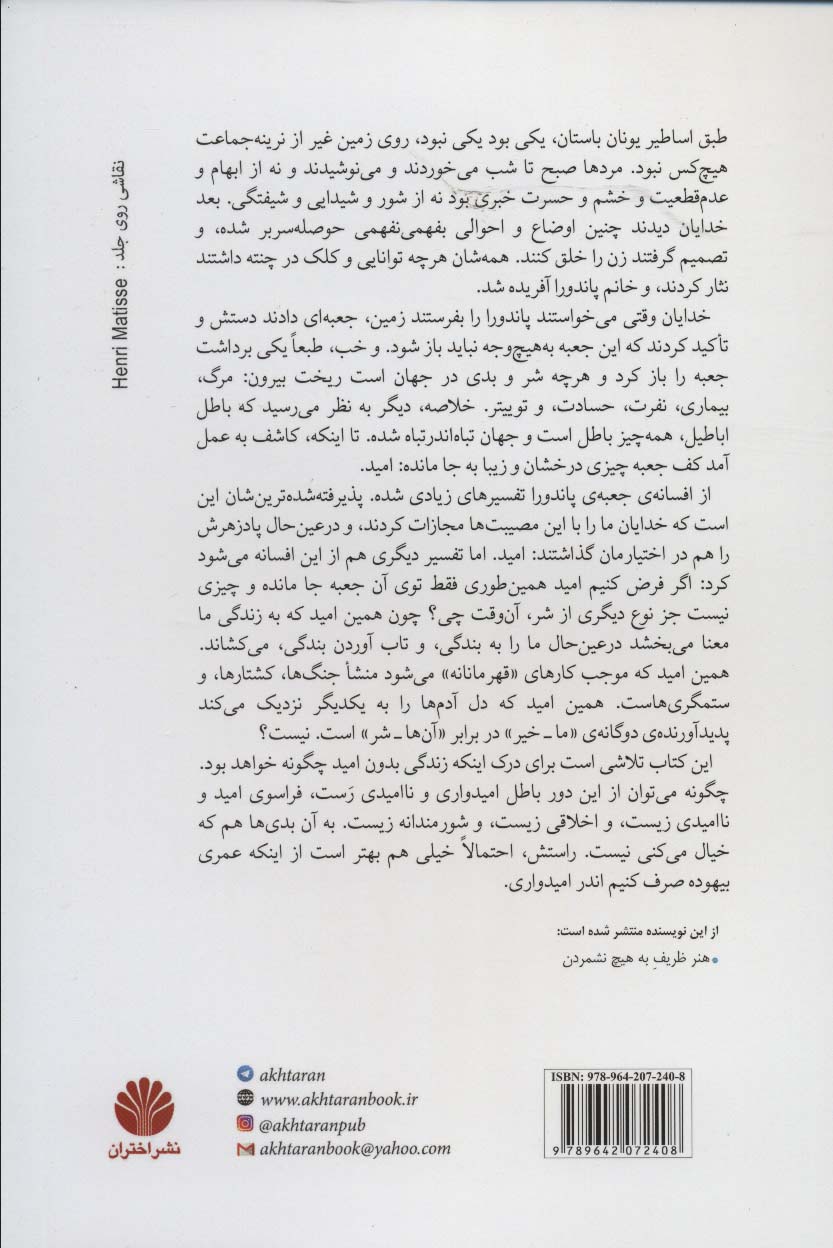 طبق اساطیر یونان باستان، یکی بود یکی نبود، روی زمین غیر از نرینه‌جماعت
هیچ‌کس نبود. مردها صبح تا شب می‌خوردند و می‌نوشیدند و نه از ابهام و
عدم‌قطعیت و خشم و حسرت خبری بود نه از شور و شیدایی و شیفتگی. بعد
خدایان دیدند چنین اوضاع و احوالی بفهمی‌نفهمی حوصله‌سربر شده، و
تصمیم گرفتند زن را خلق کنند. همه‌شان هرچه توانایی و کلک در چنته داشتند
نثار کردند، و خانم پاندورا آفریده شد.
خدایان وقتی می‌خواستند پاندورا را بفرستند زمین، جعبه‌ای دادند دستش و
تأکید کردند که این جعبه به‌هیچ‌وجه نباید باز شود. و خب، طبعاً یکی برداشت
جعبه را باز کرد و هرچه شر و بدی در جهان است ریخت بیرون: مرگ،
بیماری، نفرت، حسادت، و توییتر. خلاصه، دیگر به نظر می‌رسید که باطل
اباطیل، همه‌چیز باطل است و جهان تباه‌اندرتباه شده. تا اینکه، کاشف به عمل
آمد کف جعبه چیزی درخشان و زیبا به جا مانده: امید.
از افسانه‌ی جعبه‌ی پاندورا تفسیرهای زیادی شده. پذیرفته‌شده‌ترین‌شان این
است که خدایان ما را با این مصیبت‌ها مجازات کردند، و درعین‌حال پادزهرش
را هم در اختیارمان گذاشتند: امید. اما تفسیر دیگری هم از این افسانه می‌شود
کرد: اگر فرض کنیم امید همین‌طوری فقط توی آن جعبه جا مانده و چیزی
نیست جز نوع دیگری از شر، آن‌وقت چی؟ چون همین امید که به زندگی ما
معنا می‌بخشد درعین‌حال ما را به بندگی، و تاب آوردن بندگی، می‌کشاند.
همین امید که موجب کارهای «قهرمانانه» می‌شود منشأ جنگ‌ها، کشتارها، و
ستمگری‌هاست. همین امید که دل آدم‌ها را به یکدیگر نزدیک می‌کند
پدیدآورنده‌ی دوگانه‌ی «ما ـ خیر» در برابر «آن‌ها ـ شر» است. نیست؟
این کتاب تلاشی است برای درک اینکه زندگی بدون امید چگونه خواهد بود.
چگونه می‌توان از این دور باطل امیدواری و ناامیدی رَست، فراسوی امید و
ناامیدی زیست، و اخلاقی زیست، و شورمندانه زیست. به آن بدی‌ها هم که
خیال می‌کنی نیست. راستش، احتمالاً خیلی هم بهتر است از اینکه عمری
بیهوده صرف کنیم اندر امیدواری.
از این نویسنده منتشر شده است:
• هنر ظریفِ به هیچ نشمردن
نقاشی روی جلد : Henri Matisse
akhtaran
www.akhtaranbook.ir
@akhtaranpub
akhtaranbook@yahoo.com
نشر اختران
ISBN: 978-964-207-240-8
9 789642 072408